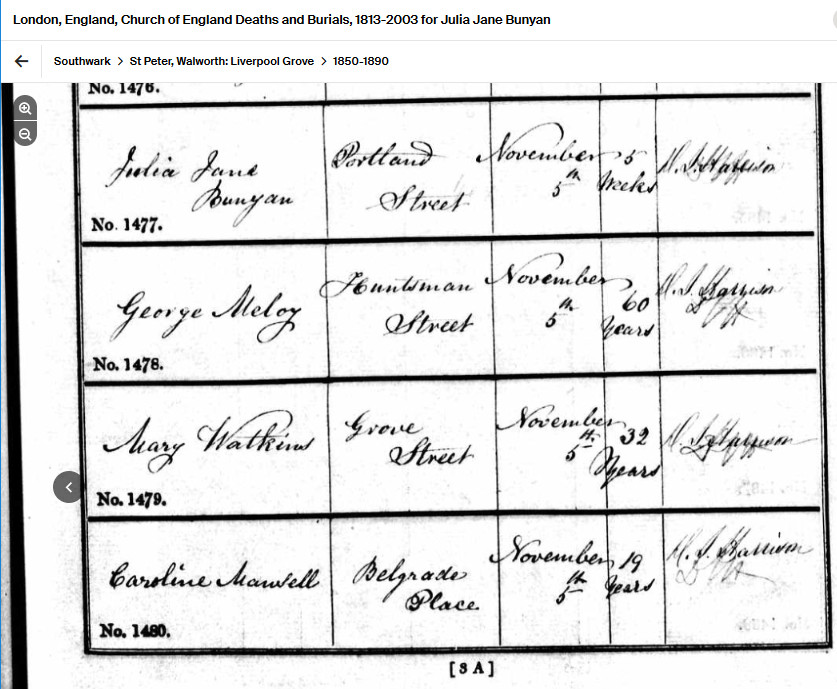 London, England, Church of England Deaths and Burials, 1813-2003 for Julia Jane Bunyan
Southwark > St Peter, Walworth: Liverpool Grove > 1850-1890
No. 1476.
Julia Jane Bunyan
Portland Street
November 5th
5 Weeks
Harrison
No. 1477.
George Meloy
Huntsman Street
November 5th
60 Years
Harrison
No. 1478.
Mary Watkins
Grove Street
November 5th
32 Years
Harrison
No. 1479.
Caroline Mansell
Belgrade Place
November 5th
19 Years
Harrison
No. 1480.
[3 A]